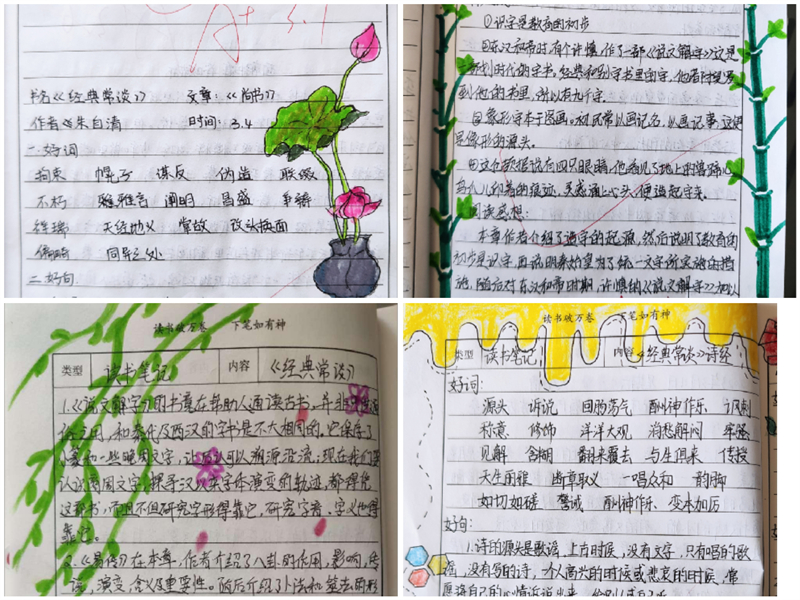 A+ 3.4
书名《经典常谈》 文章:《尚书》
作者:朱自清 时间: 3.4
一.好词
拘束 幌子 谋反 伪造 联缀
不朽 雅言 阐明 昌盛 争锋
祥瑞 天经地义 掌故 改头换面
同异之处
二.好句
①识字是教育的初步
东汉和帝时,有个许慎,作了一部《说文解字》这是
划时代的字书,经典和别的字书里的字,他都搜罗
到他的书里,所以有九千字。
象形字本于图画。初民常以画记名,以画记事,这便
是象形的源头。
阅读感想:
本章作者介绍了造字的起源,然后说明了教育的
初步是识字,再说明秦始皇为了统一文字所实施的措
施,随后对东汉和帝时期,许慎的《说文解字》加以
读书破万卷 下笔如有神
类型 读书笔记 内容 《经典常谈》
1.《说文解字》的书意在帮助人通读古书,并非
和秦代及西汉的字书是不大相同的。它保存了
小篆和一些晚周文字,让后人可以溯源沿流;现在我们要
认识商周文字,探寻汉以来字体演变的轨迹,都得凭
这部书,而且不但研究字形得靠它,研究字音、字义也得
靠它。
2.《易传》在本章,作者介绍了八卦的作用,影响,传
说,演变,含义及重要性。随后介绍了卜法和筮法的形
读书破万卷 下笔如有神
类型 读书笔记 内容 《经典常谈》诗经
好词:
源头 诉说 回肠荡气 酬神作乐 讽刺
称意 修饰 洋洋大观 消愁解闷 牢骚
见解 含糊 翻来覆去 与生俱来 传授
天生雨雅 断章取义 一唱众和 韵脚
如切如磋 警诫 酬神作乐 变本加厉
好句:
1.诗的源头是歌谣,上古时候,没有文字,只有唱的歌
谣,没有写的诗,个人高兴的时候或悲哀的时候,常
愿意将自己的心情诉说出来,给别人或自己